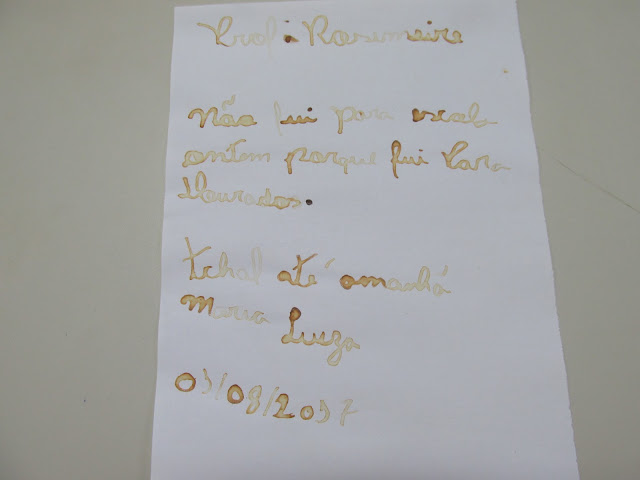 Prof: Rosimeire
Não fui para escola
ontem porque fui para
Dourados.
tchal até amanhá
Maria Luiza
01/08/2017